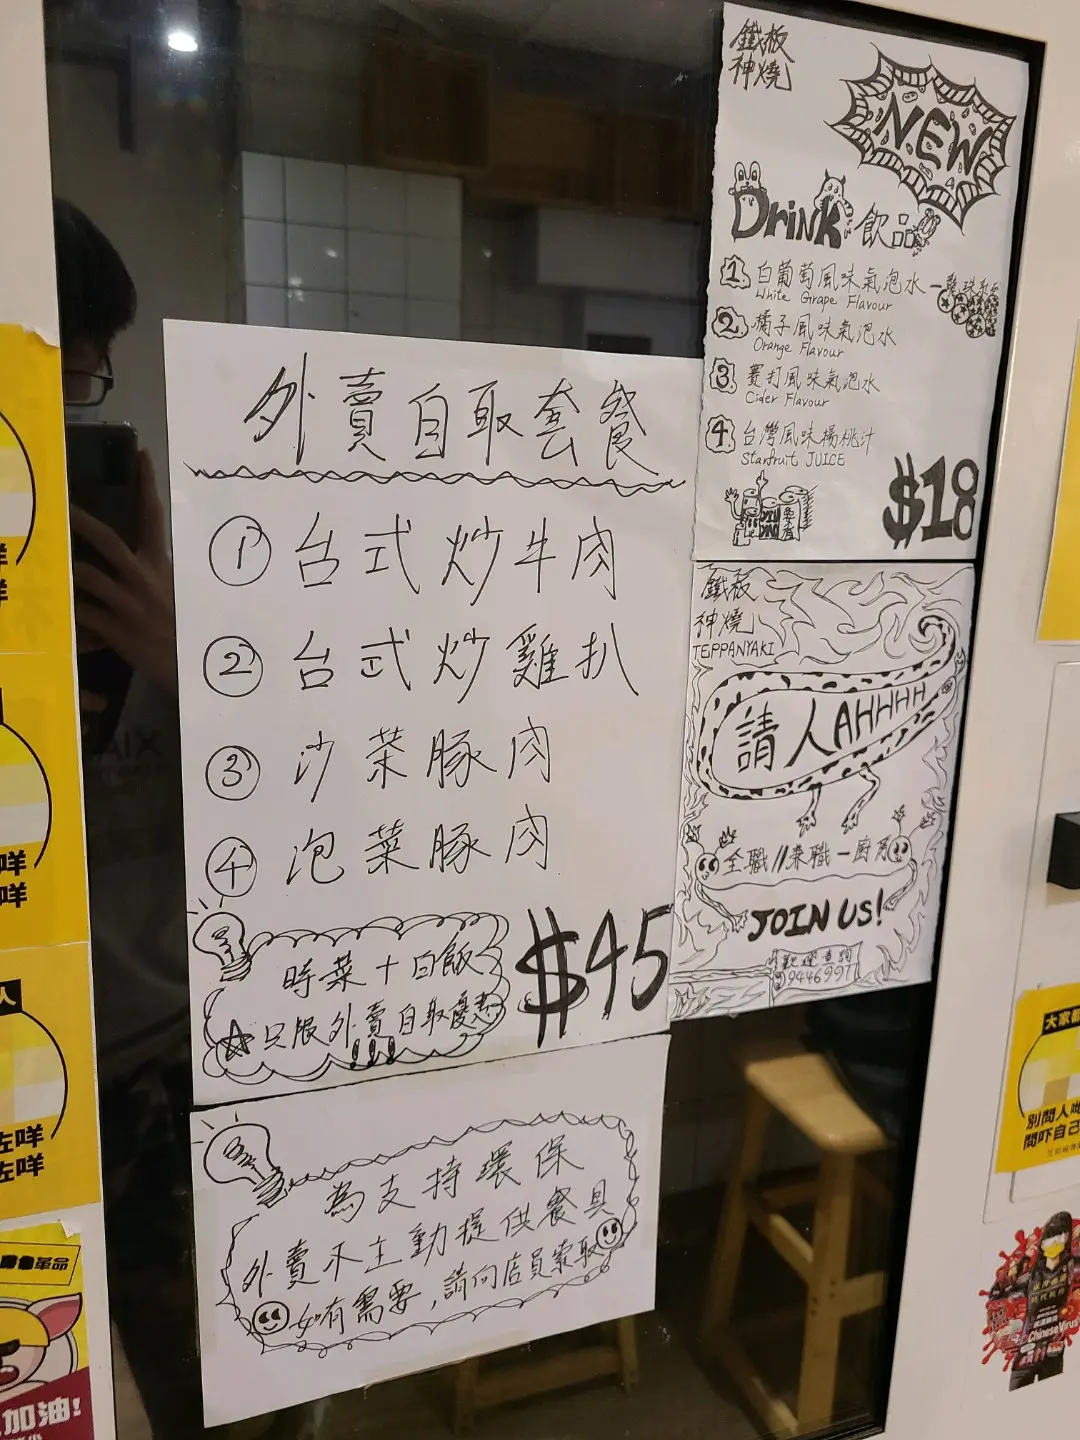 鐵板
神燒
NEW
Drink 飲品
1 白葡萄風味氣泡水
White Grape Flavour
2 橘子風味氣泡水
Orange Flavour
3 賽打風味氣泡水
Cider Flavour
4 台灣風味楊桃汁
Starfruit JUICE
$18
外賣自取套餐
① 台式炒牛肉
② 台式炒雞扒
③ 沙菜豚肉
④ 泡菜豚肉
時菜+白飯
只限外賣自取優惠
!!!
$45
鐵板
神燒
TEPPANYAKI
請人AHHHH
全職//兼職一廚房
JOIN US!
歡迎查詢
為支持環保
外賣不主動提供餐具
如有需要,請向店員索取
咩
咩
人
咗咩
咗咩
革命
加油!
大家都
別問人哋
問吓自己
Chinese Virus